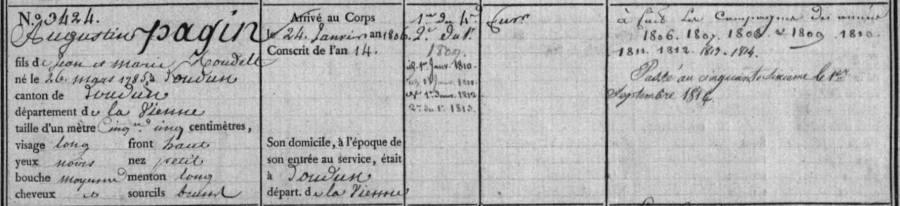 N.º 3424.
Augustin pagin
fils de jean et marie Houdelle
né le 26 mars 1785 à Loudun
canton de Loudun
département de la Vienne
taille d'un mètre cinq.te cinq centimètres,
visage long front haut
yeux noirs nez petit
bouche moyenne menton long
cheveux et sourcils bruns
Arrivé au Corps
le 24 Janvier an 1806
Conscrit de l'an 14.
Son domicile, à l'époque de
son entrée au service, était
à Loudun
départ. de la Vienne
1.re du 4.e
2.e du 1.er
1809.
1.er Janv. 1810.
1.er Janv. 1811
1.er Janv. 1812
2.e du 1.er 1813.
à fait les Campagnes des années
1806. 1807. 1808. & 1809. 1810.
1811. 1812. 1813. 1814.
Passé au cinquante sixième le 1.er
Septembre 1814